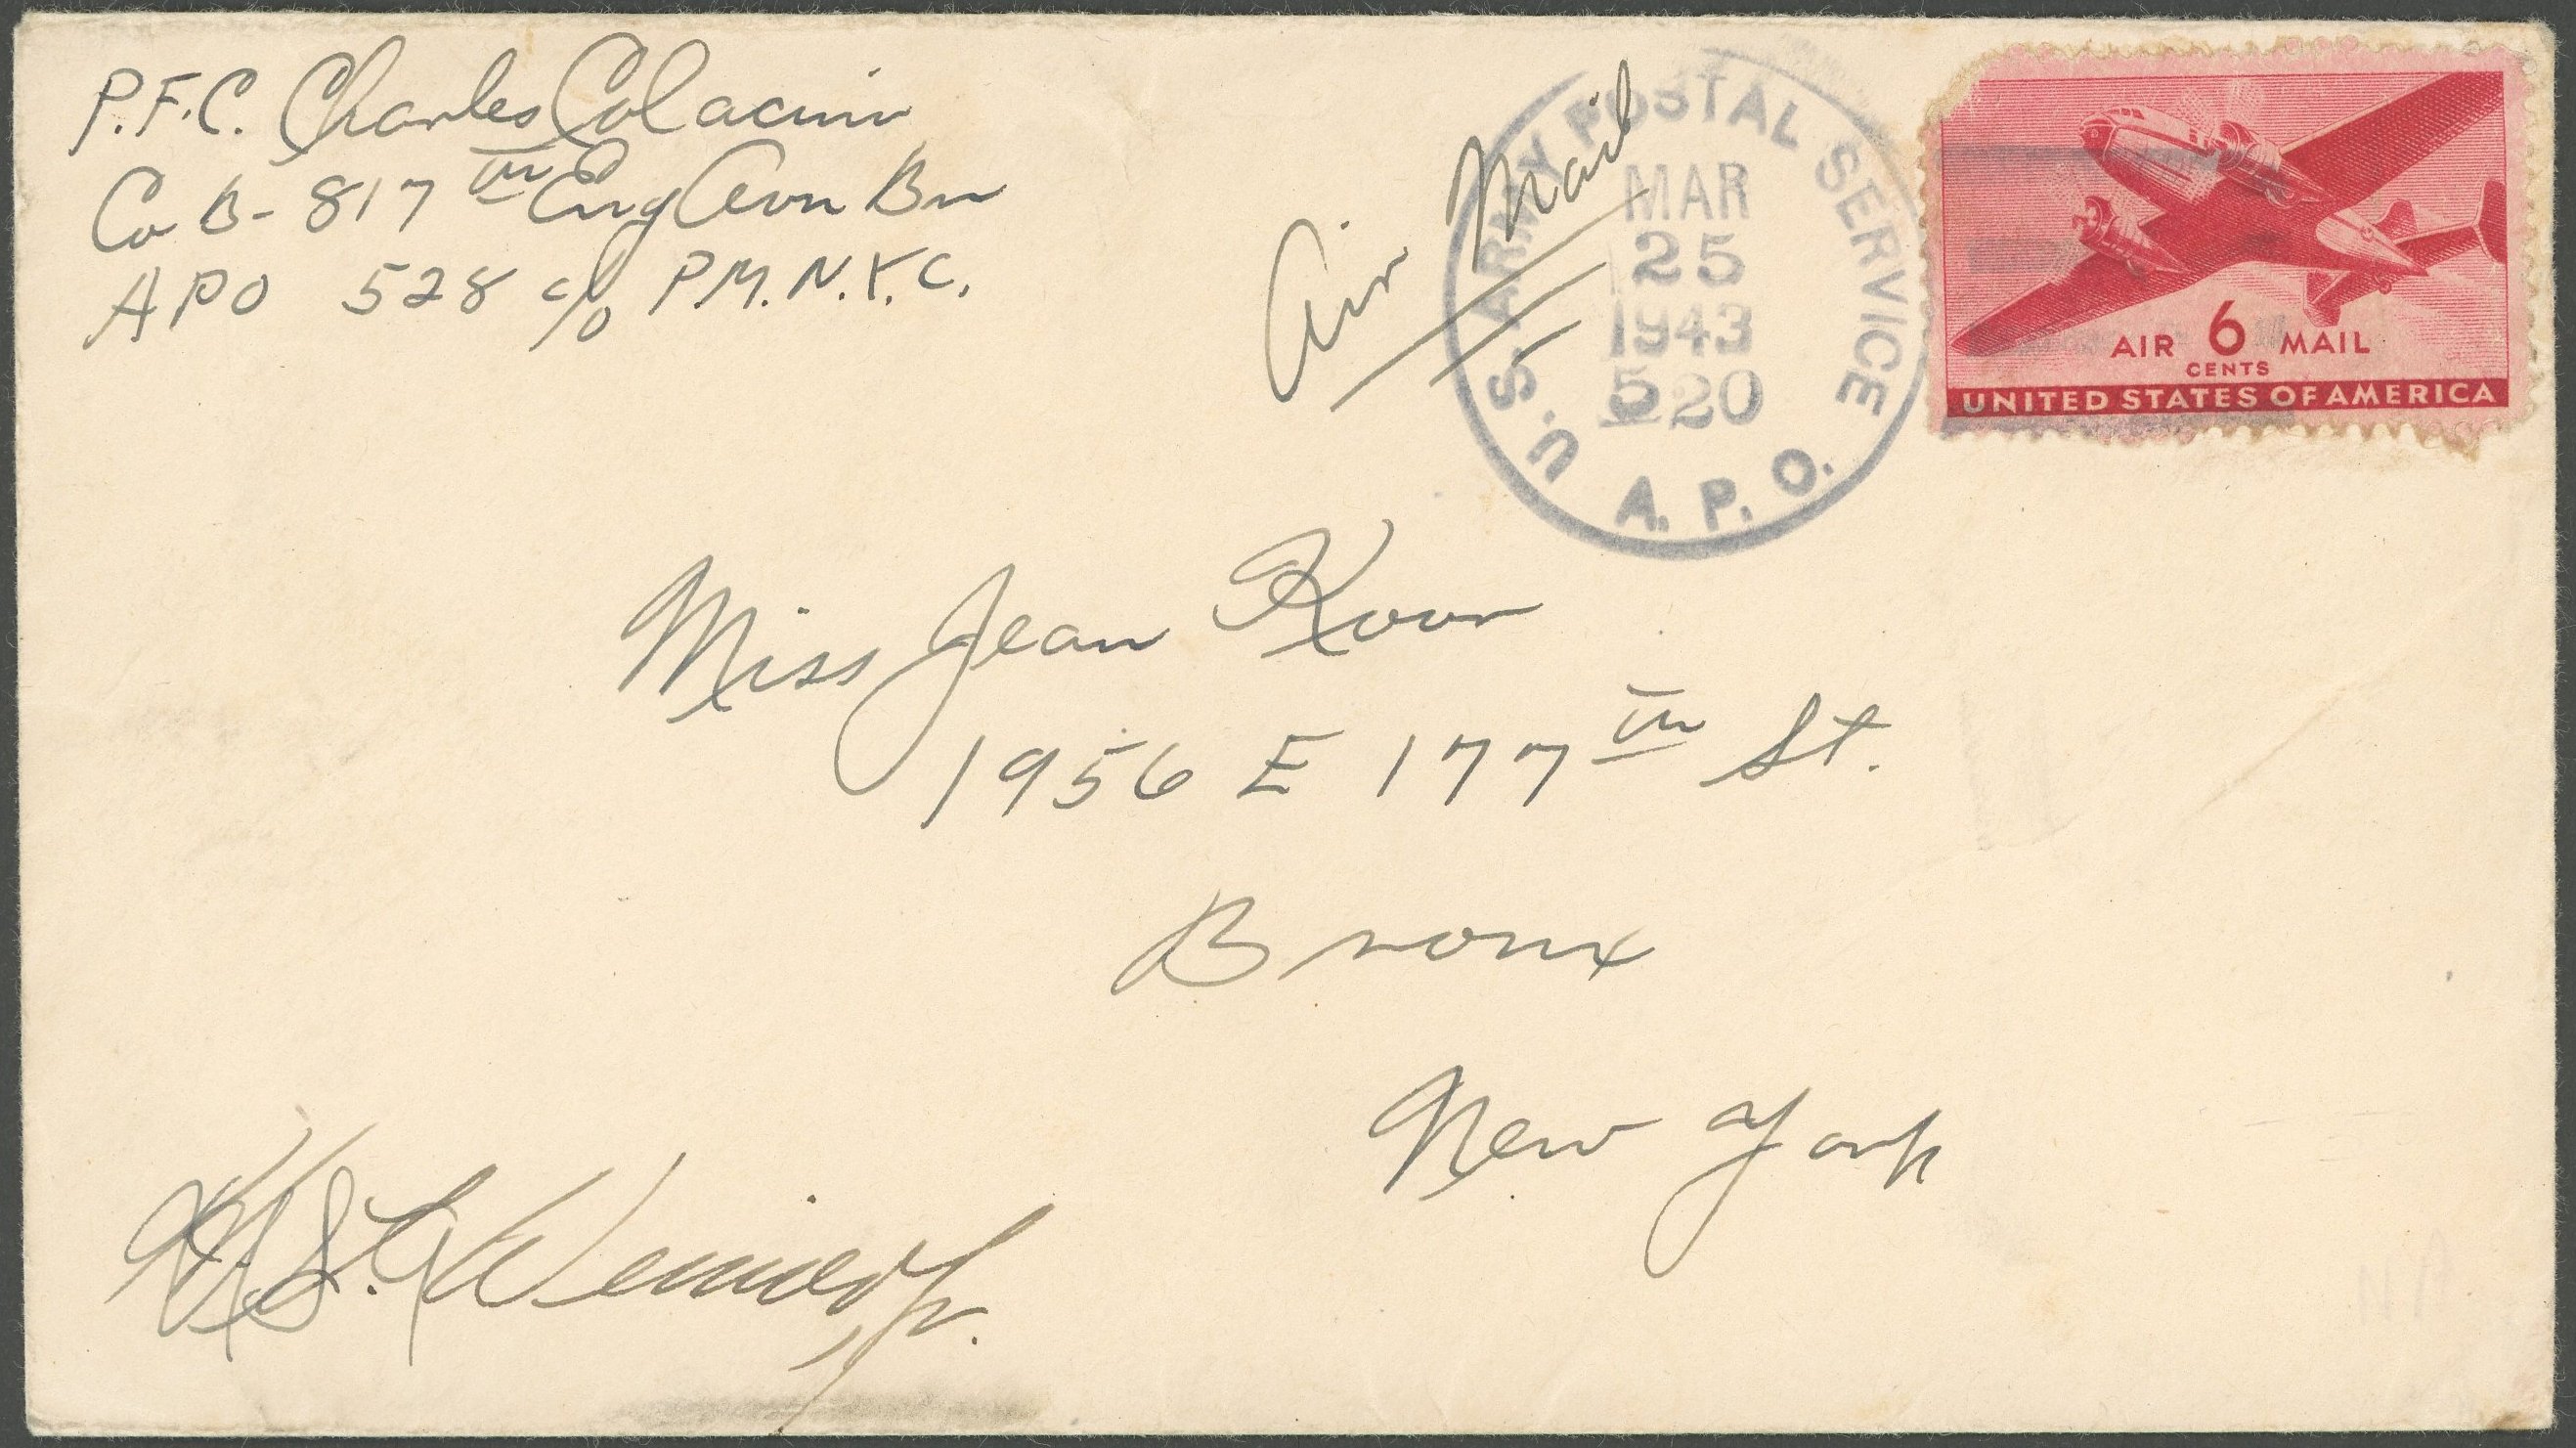 P.F.C. Charles Colacino
Co B - 817th Eng Avn Bn
APO 528 c/o P.M. N.Y.C.
Air Mail
U.S. ARMY POSTAL SERVICE
MAR
25
1943
5 20
A.P.O.
AIR 6 MAIL
CENTS
UNITED STATES OF AMERICA
Miss Jean Koor
1956 E 177th St.
Bronx
New York
Jr.